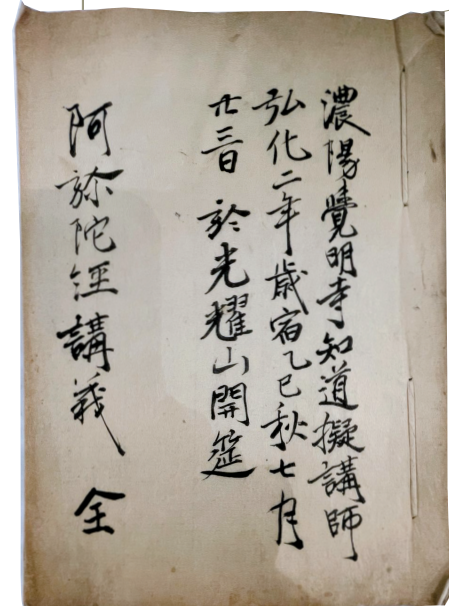 濃陽覺明寺知道擬講師
弘化二年歳宿乙巳秋七月
廿三日 於光耀山開筵
阿弥陀経講義 全